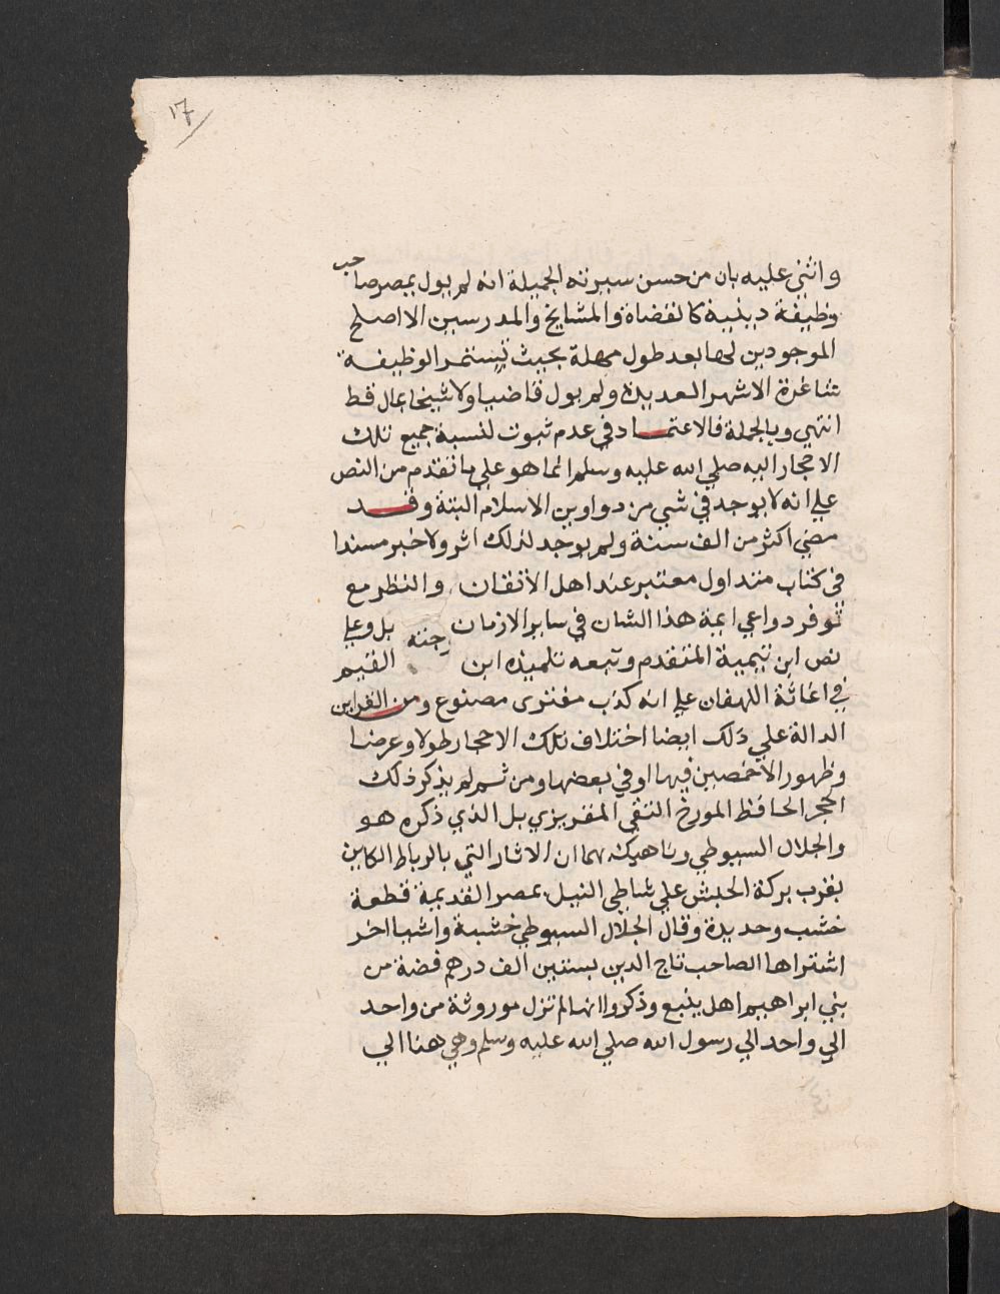 ١٧
واثني عليه بان من حسن سيرته الجميلة انه لم يول بمصر صاحب
وظيفة دينية كالقضاة والمشايخ والمدرسين الا اصلح
الموجودين لها بعد طول مهلة بحيث تستمر الوظيفة
شاغرة الاشهر العديدة ولم يول قاضيا ولا شيخا بمال قط
انتهي وبالجملة فالاعتماد في عدم ثبوت لنسبة جميع تلك
الاحجار اليه صلي الله عليه وسلم انما هو علي ما تقدم من النص
علي انه لا يوجد في شي من دواوين الاسلام البتة وقد
مضي اكثر من الف سنة ولم يوجد لذلك اثر ولا خبر مسندا
في كتاب متداول معتبر عند اهل الاتقان والنظر مع
توفر دواعي ايمة هذا الشان في ساير الازمان بل وعلي
نص ابن تيمية المتقدم وتبعه تلميذه ابن القيم
في اغاثة اللهفان علي انه كذب مفتري مصنوع ومن القراين
الدالة علي ذلك ايضا اختلاف تلك الاحجار طولا وعرضا
وظهور الاخمصين فيها او في بعضها ومن ثم لم يذكر ذلك
الحجر الحافظ المورخ التقي المقريزي بل الذي ذكره هو
والجلال السيوطي وناهيك بهما ان الاثار التي بالرباط الكاين
بقرب بركة الحبش علي شاطي النيل بمصر القديمة قطعة
خشب وحديدة وقال الجلال السيوطي خشبة واشيا اخر
اشتراها الصاحب تاج الدين بستين الف درهم فضة من
بني ابراهيم اهل ينبع وذكروا انها لم تزل موروثة من واحد
الي واحد الي رسول الله صلي الله عليه وسلم وهي هنا الي